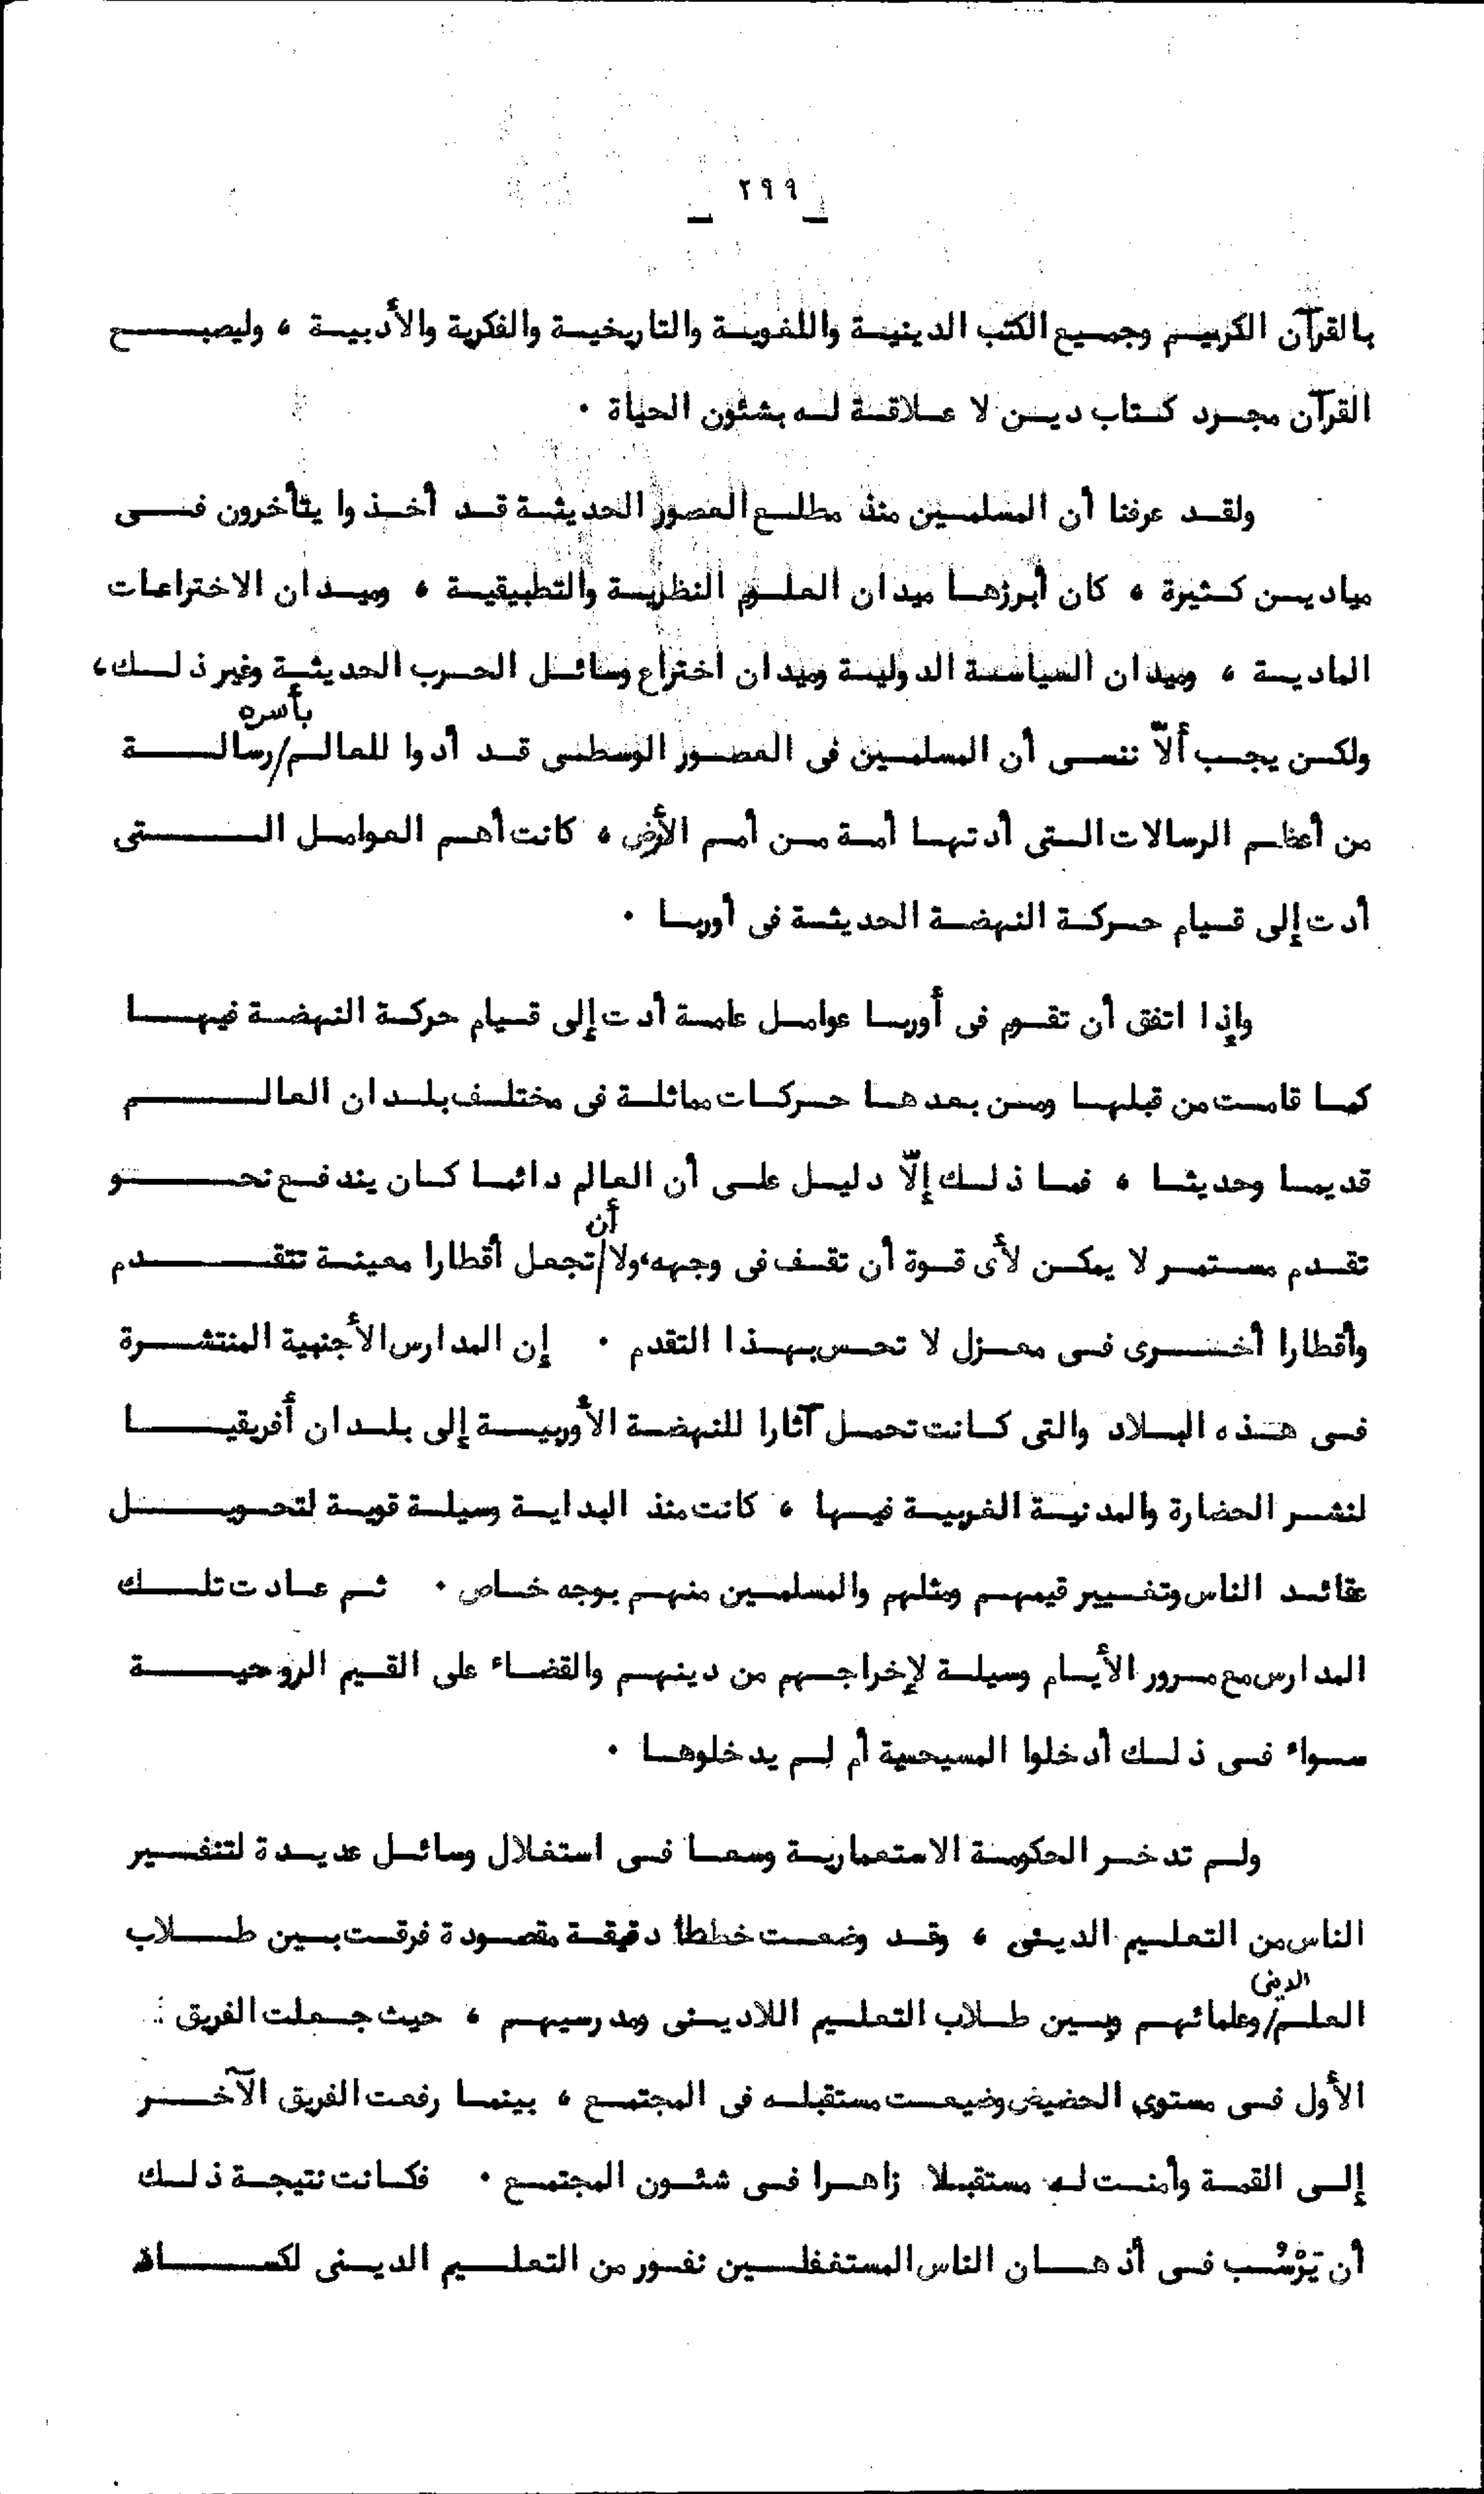 ٢٩٩
بالقرآن الكريم وجميع الكتب الدينية واللغوية والتاريخية والفكرية والأدبية ، وليصبح
القرآن مجرد كتاب دين لا علاقة له بشئون الحياة .
ولقد عرفنا أن المسلمين منذ مطلع العصور الحديثة قد أخذوا يتأخرون فى
ميادين كثيرة ، كان أبرزها ميدان العلوم النظرية والتطبيقية ، وميدان الاختراعات
المادية ، وميدان السياسة الدولية وميدان اختراع وسائل الحرب الحديثة وغير ذلك،
ولكن يجب ألاّ ننسى أن المسلمين فى العصور الوسطى قد أدوا للعالم/بأسره رسالة
من أعظم الرسالات التى أدتها أمة من أمم الأرض ، كانت أهم العوامل التى
أدت إلى قيام حركة النهضة الحديثة فى أوربا .
وإذا اتفق أن تقوم فى أوربا عوامل عامة أدت إلى قيام حركة النهضة فيها
كما قامت من قبلها ومن بعدها حركات مماثلة فى مختلف بلدان العالم
قديما وحديثا ، فما ذلك إلاّ دليل على أن العالم دائما كان يندفع نحو
تقدم مستمر لا يمكن لأى قوة أن تقف فى وجهه، ولا/أن تجعل أقطارا معينة تتقدم
وأقطارا أخرى فى معزل لا تحس بهذا التقدم . إن المدارس الأجنبية المنتشرة
فى هذه البلاد والتى كانت تحمل آثارا للنهضة الأوربية إلى بلدان أفريقيا
لنشر الحضارة والمدنية الغربية فيها ، كانت منذ البداية وسيلة قوية لتحويل
عقائد الناس وتغيير قيمهم ومثلهم والمسلمين منهم بوجه خاص . ثم عادت تلك
المدارس مع مرور الأيام وسيلة لإخراجهم من دينهم والقضاء على القيم الروحية
سواء فى ذلك أدخلوا المسيحية أم لم يدخلوها .
ولم تدخر الحكومة الاستعمارية وسعا فى استغلال وسائل عديدة لتنفير
الناس من التعليم الدينى ، وقد وضعت خططا دقيقة مقصودة فرقت بين طلاب
العلم/الدينى وعلمائهم وبين طلاب التعليم اللادينى ومدرسيهم ، حيث جعلت الفريق
الأول فى مستوى الحضيض وضيعت مستقبله فى المجتمع ، بينما رفعت الفريق الآخر
إلى القمة وأمنت له مستقبلا زاهرا فى شئون المجتمع . فكانت نتيجة ذلك
أن يَرْسُب فى أذهان الناس المستغفلين نفور من التعليم الدينى